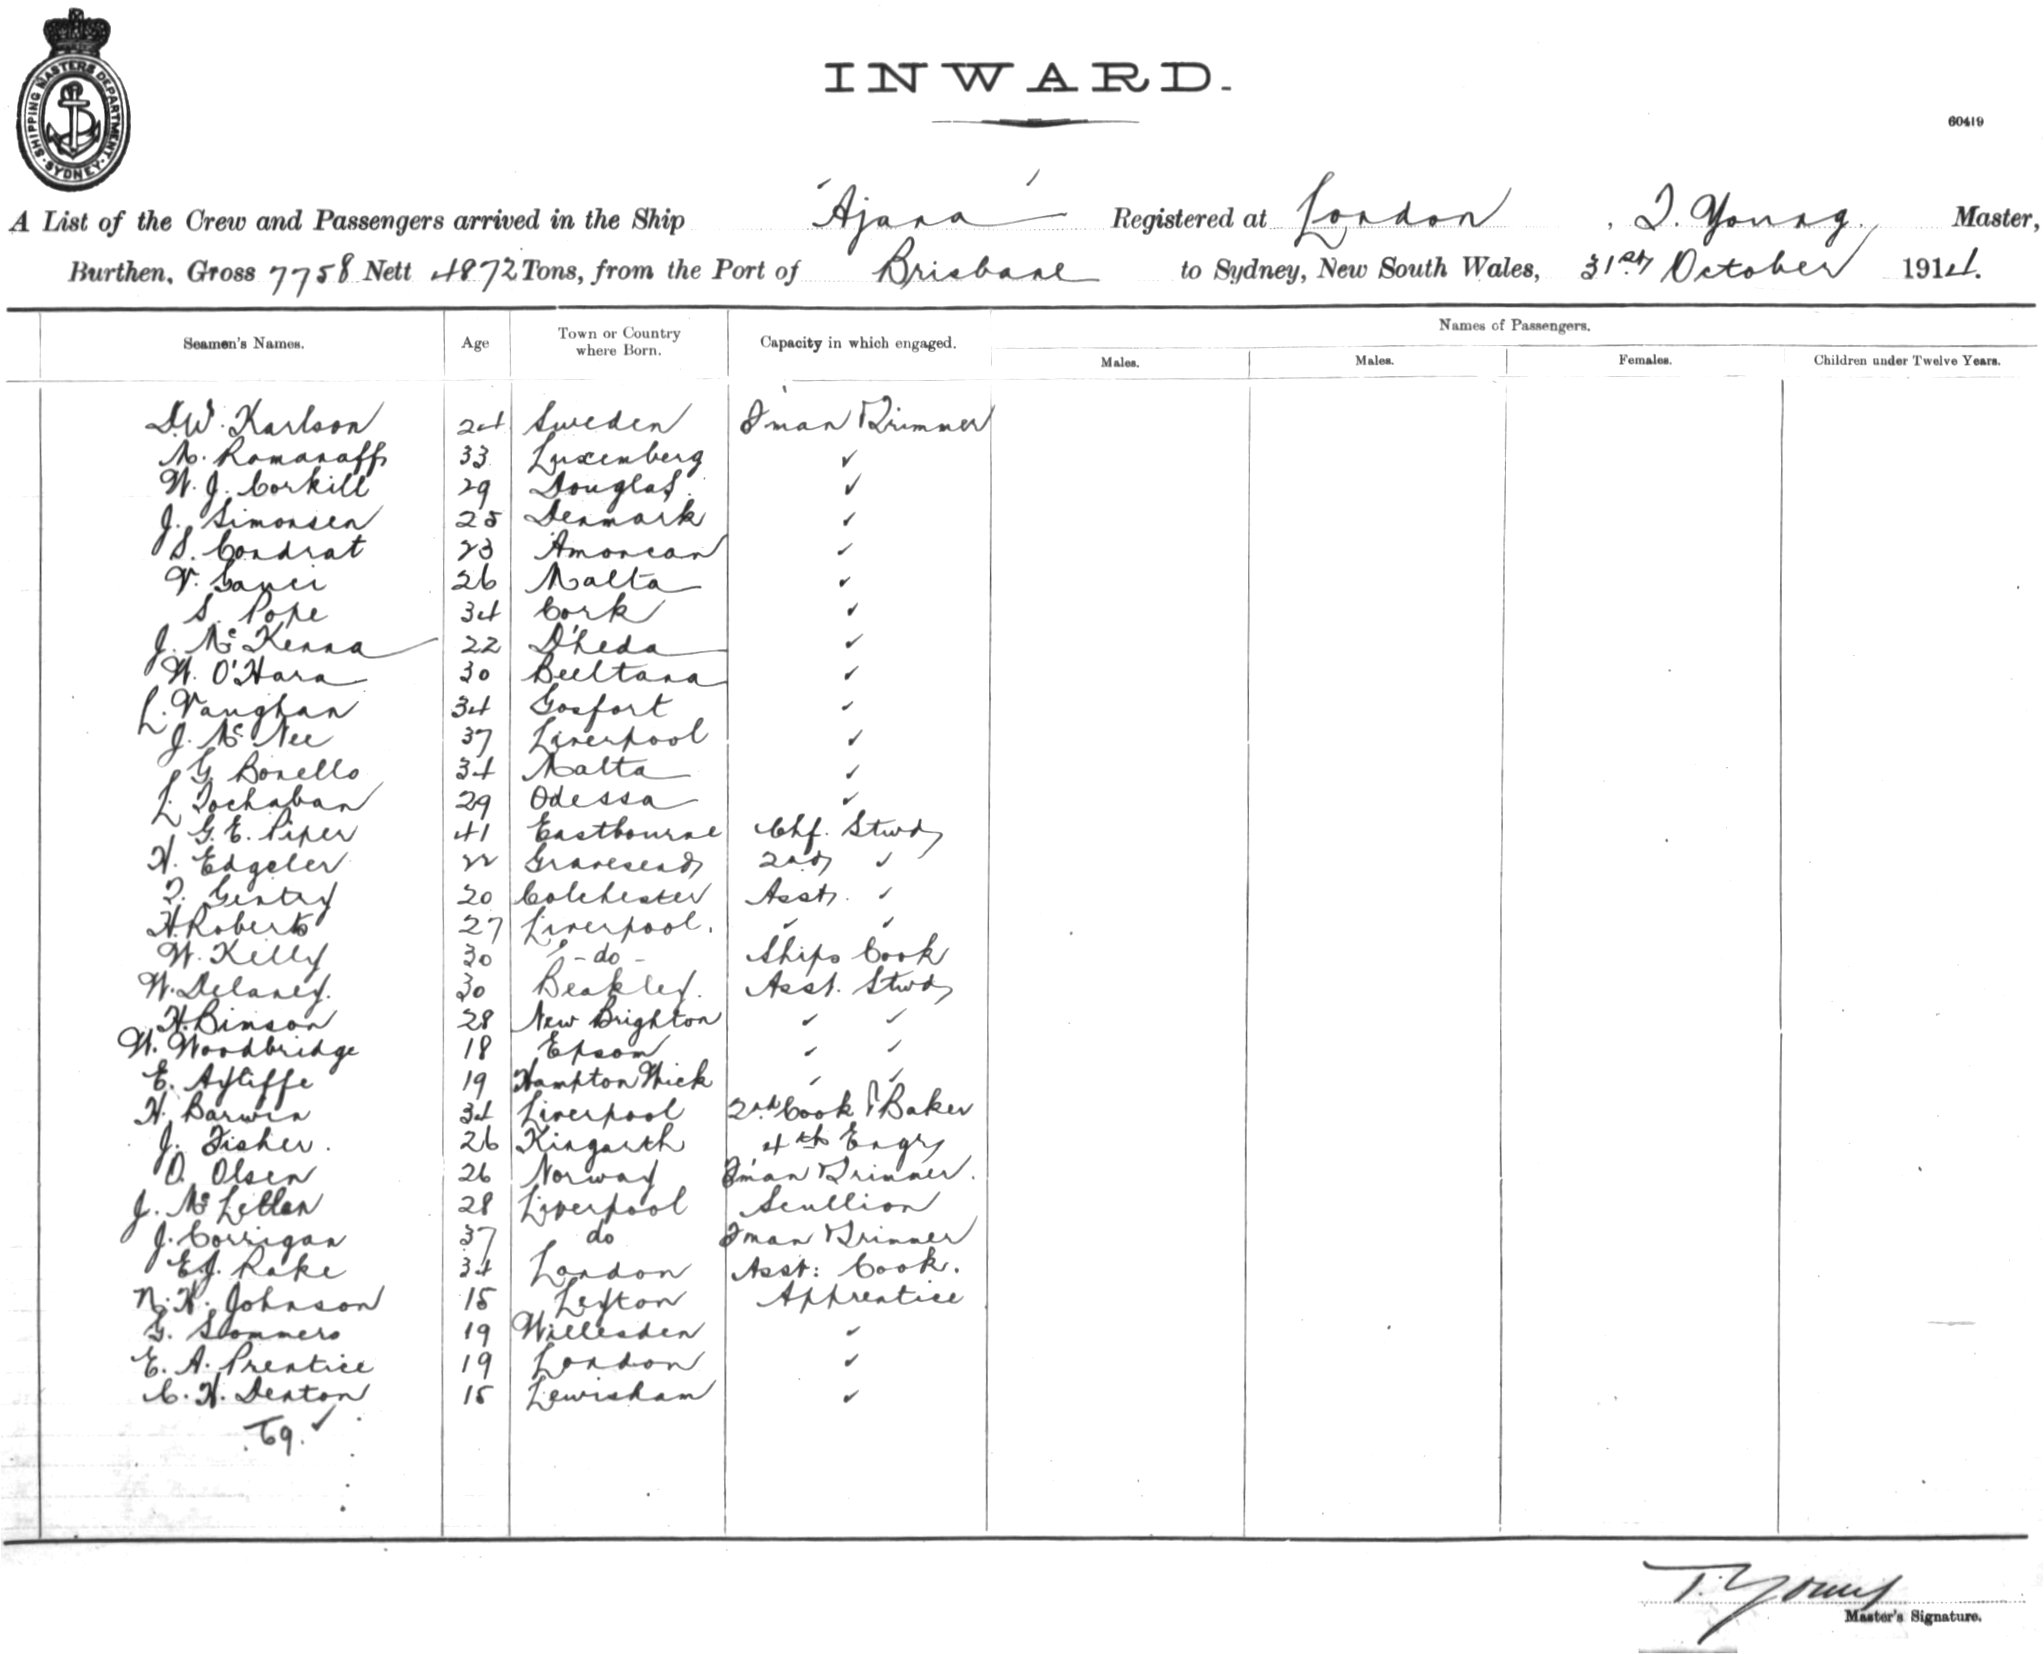 SHIPPING MASTERS DEPARTMENT · SYDNEY ·
INWARD.
60419
A List of the Crew and Passengers arrived in the Ship "Ajana" Registered at London, T. Young. Master,
Burthen, Gross 7758 Nett 4872 Tons, from the Port of Brisbane to Sydney, New South Wales, 31st October 1914.
Seamen's Names. Age Town or Country where Born. Capacity in which engaged. Names of Passengers.
Males. Males. Females. Children under Twelve Years.
D.W. Karlson 24 Sweden F'man & Trimmer
N. Romanaff 33 Luxemberg ✓
W. J. Corkill 29 Douglas. ✓
J. Simonsen 25 Denmark ✓
S. Condrat 23 ✓
V. Gauci 26 Malta ✓
S. Pope 34 Cork ✓
J. McKenna 22 D'heda ✓
W. O'Hara 30 Beeltana ✓
L. Vaughan 34 Gosfort ✓
J. McNee 37 Liverpool ✓
G Bonello 34 Malta ✓
L. Tochaban 29 Odessa ✓
G. E. Piper 41 Eastbourne Chf. Stwd
H. Edgeler 22 Gravesend 2nd ✓
T. Gentry 20 Colchester Asst. ✓
H. Roberts 27 Liverpool. ✓ ✓
W. Kelly 30 - do - Ships Cook
W. Delaney. 30 Beakley. Asst. Stwd
H. Binson 28 New Brighton ✓ ✓
W. Woodbridge 18 Epsom ✓ ✓
E. Ayliffe 19 Hampton Wick ✓ ✓
H. Barwin 34 Liverpool 2nd Cook & Baker
J. Fisher. 26 Kingarth 4th Engr
O. Olsen 26 Norway F'man & Trimmer.
J. McLellan 28 Liverpool Scullion
J. Corrigan 37 do F'man & Trimmer
E.J. Rake 34 London Asst: Cook.
N. H. Johnson 15 Leyton Apprentice
G. Sommers 19 Willesden ✓
E. A. Prentice 19 London ✓
C. H. Denton 15 Lewisham ✓
69. ✓
T. Young
Master's Signature.